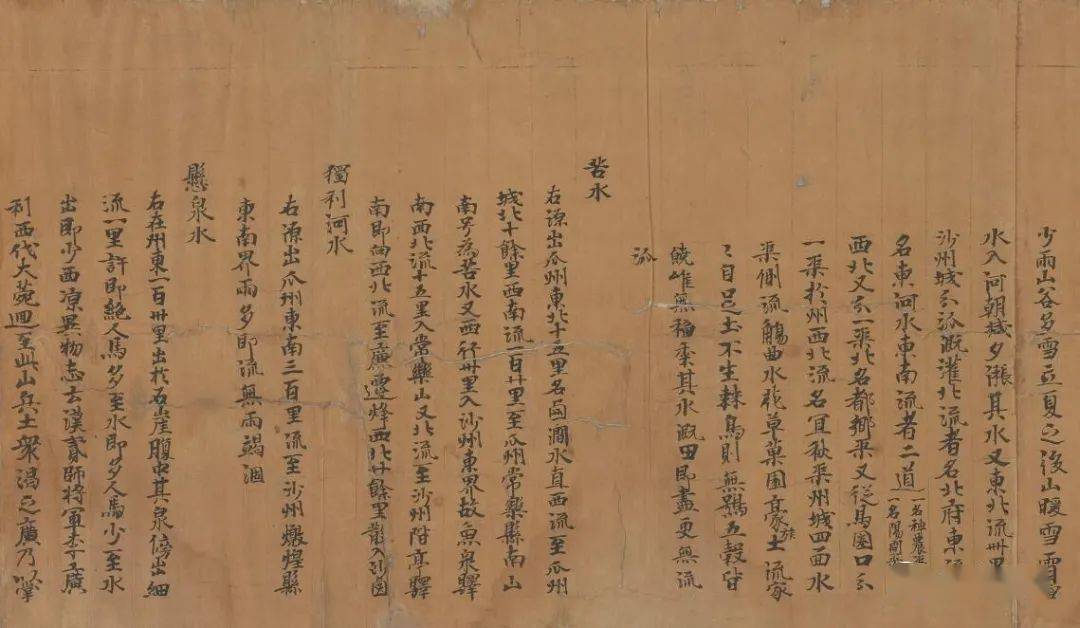 少雨山谷多雪立夏之後山暖雪
水入河朝減夕漲其水又東北流卅里
沙州城分派溉灌北流者名北府東
名東河水東南流者二道一名神農
一名陽開
西北又分一渠北名都鄉渠又從馬圈口分
一渠於州西北流名宜秋渠州城四面水
渠側流觴曲水花草菓園豪族土流家
〻自足土不生棘鳥則無鵄五穀皆
饒唯無稻黍其水溉田即盡更無流
派
苦水
右源出瓜州東北十五里名鹵澗水直西流至瓜州
城北十餘里西南流一百廿里至瓜州常樂縣南山
南号為苦水又西行卅里入沙州東界故魚泉驛
南西北流十五里入常樂山又北流至沙州階亭驛
南即向西北流至廣遷烽西北廿餘里散入沙鹵
獨利河水
右源出瓜州東南三百里流至沙州燉煌縣
東南界雨多即流無雨竭涸
懸泉水
右在州東一百卅里出於石崖腹中其泉傍出細
流一里許即絕人馬多至水即多人馬少至水
出即少西涼異物志云漢貳師將軍李廣
利西伐大菀迴至此山兵士衆渴乏廣乃以掌